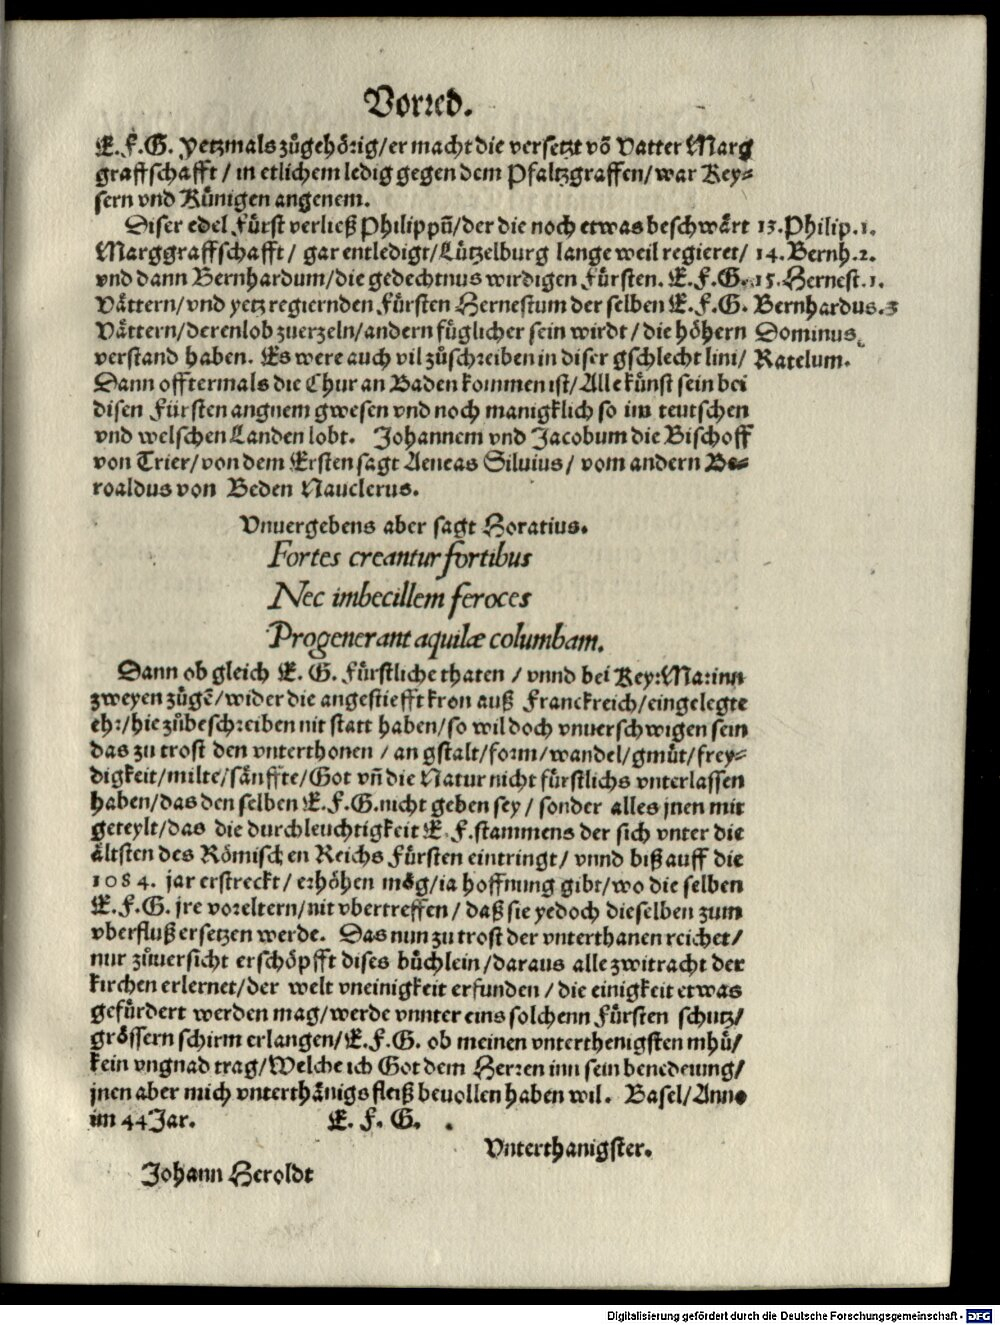 Vorred.
E.F.G. yetzmals zůgehörig/er macht die versetzt võ Vatter Marg
graffschafft / in etlichem ledig gegen dem Pfaltzgraffen/war Key⸗
sern vnd Künigen angenem.
Diser edel Fürst verließ Philippũ/der die noch etwas beschwärt 13.Philip.1.
Marggraffschafft / gar entledigt/Lützelburg lange weil regieret/ 14.Bernh.2.
vnd dann Bernhardum/die gedechtnus wirdigen Fürsten. E.F.G. 15.Hernest.1.
Vättern/vnd yetz regiernden Fürsten Hernestum der selben E.F.G. Bernhardus.3
Vättern/deren lob zuerzeln/andern füglicher sein wirdt / die höhern Dominus
verstand haben. Es were auch vil zůschreiben in diser gschlecht lini/ Ratelum.
Dann offtermals die Chur an Baden kommen ist/Alle künst sein bei
disen Fürsten angnem gwesen vnd noch manigklich so im teutschen
vnd welschen Landen lobt. Johannem vnd Jacobum die Bischoff
von Trier/von dem Ersten sagt Aeneas Siluius / vom andern Be⸗
roaldus von Beden Nauclerus.
Vnuergebens aber sagt Horatius.
Fortes creantur fortibus
Nec imbecillem feroces
Progenerant aquilæ columbam.
Dann ob gleich E. G. Fürstliche thaten / vnnd bei Key:Ma:inn
zweyen zügẽ/wider die angestiefft kron auß Franckreich/eingelegte
ehr/hie zůbeschreiben nit statt haben/so wil doch vnuerschwigen sein
das zu trost den vnterthonen / an gstalt/form/wandel/gmůt/frey⸗
digkeit/milte/sänffte/Got vñ die Natur nicht fürstlichs vnterlassen
haben/das den selben E.F.G.nicht geben sey / sonder alles jnen mit
geteylt/das die durchleuchtigkeit E.F.stammens der sich vnter die
ältsten des Römischen Reichs Fürsten eintringt / vnnd biß auff die
1084. jar erstreckt / erhöhen mög/ia hoffnung gibt/wo die selben
E.F.G. jre voreltern/nit vbertreffen / daß sie yedoch dieselben zum
vberfluß ersetzen werde. Das nun zu trost der vnterthanen reichet/
nur zůuersicht erschöpfft dises büchlein/daraus alle zwitracht der
kirchen erlernet/der welt vneinigkeit erfunden / die einigkeit etwas
gefürdert werden mag/werde vnnter eins solchenn Fürsten schutz/
grössern schirm erlangen/E.F.G. ob meinen vnterthenigsten mhü/
kein vngnad trag/Welche ich Got dem Herren inn sein benedeiung/
jnen aber mich vnterthänigs fleiß beuollen haben wil. Basel/Anno
im 44 Jar. E. F. G.
Vnterthanigster.
Johann Heroldt
Digitalisierung gefördert durch die Deutsche Forschungsgemeinschaft - DFG